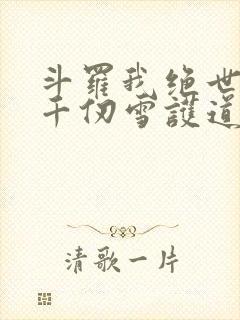 斗羅我絕世
千仞雪護道
清歌一片